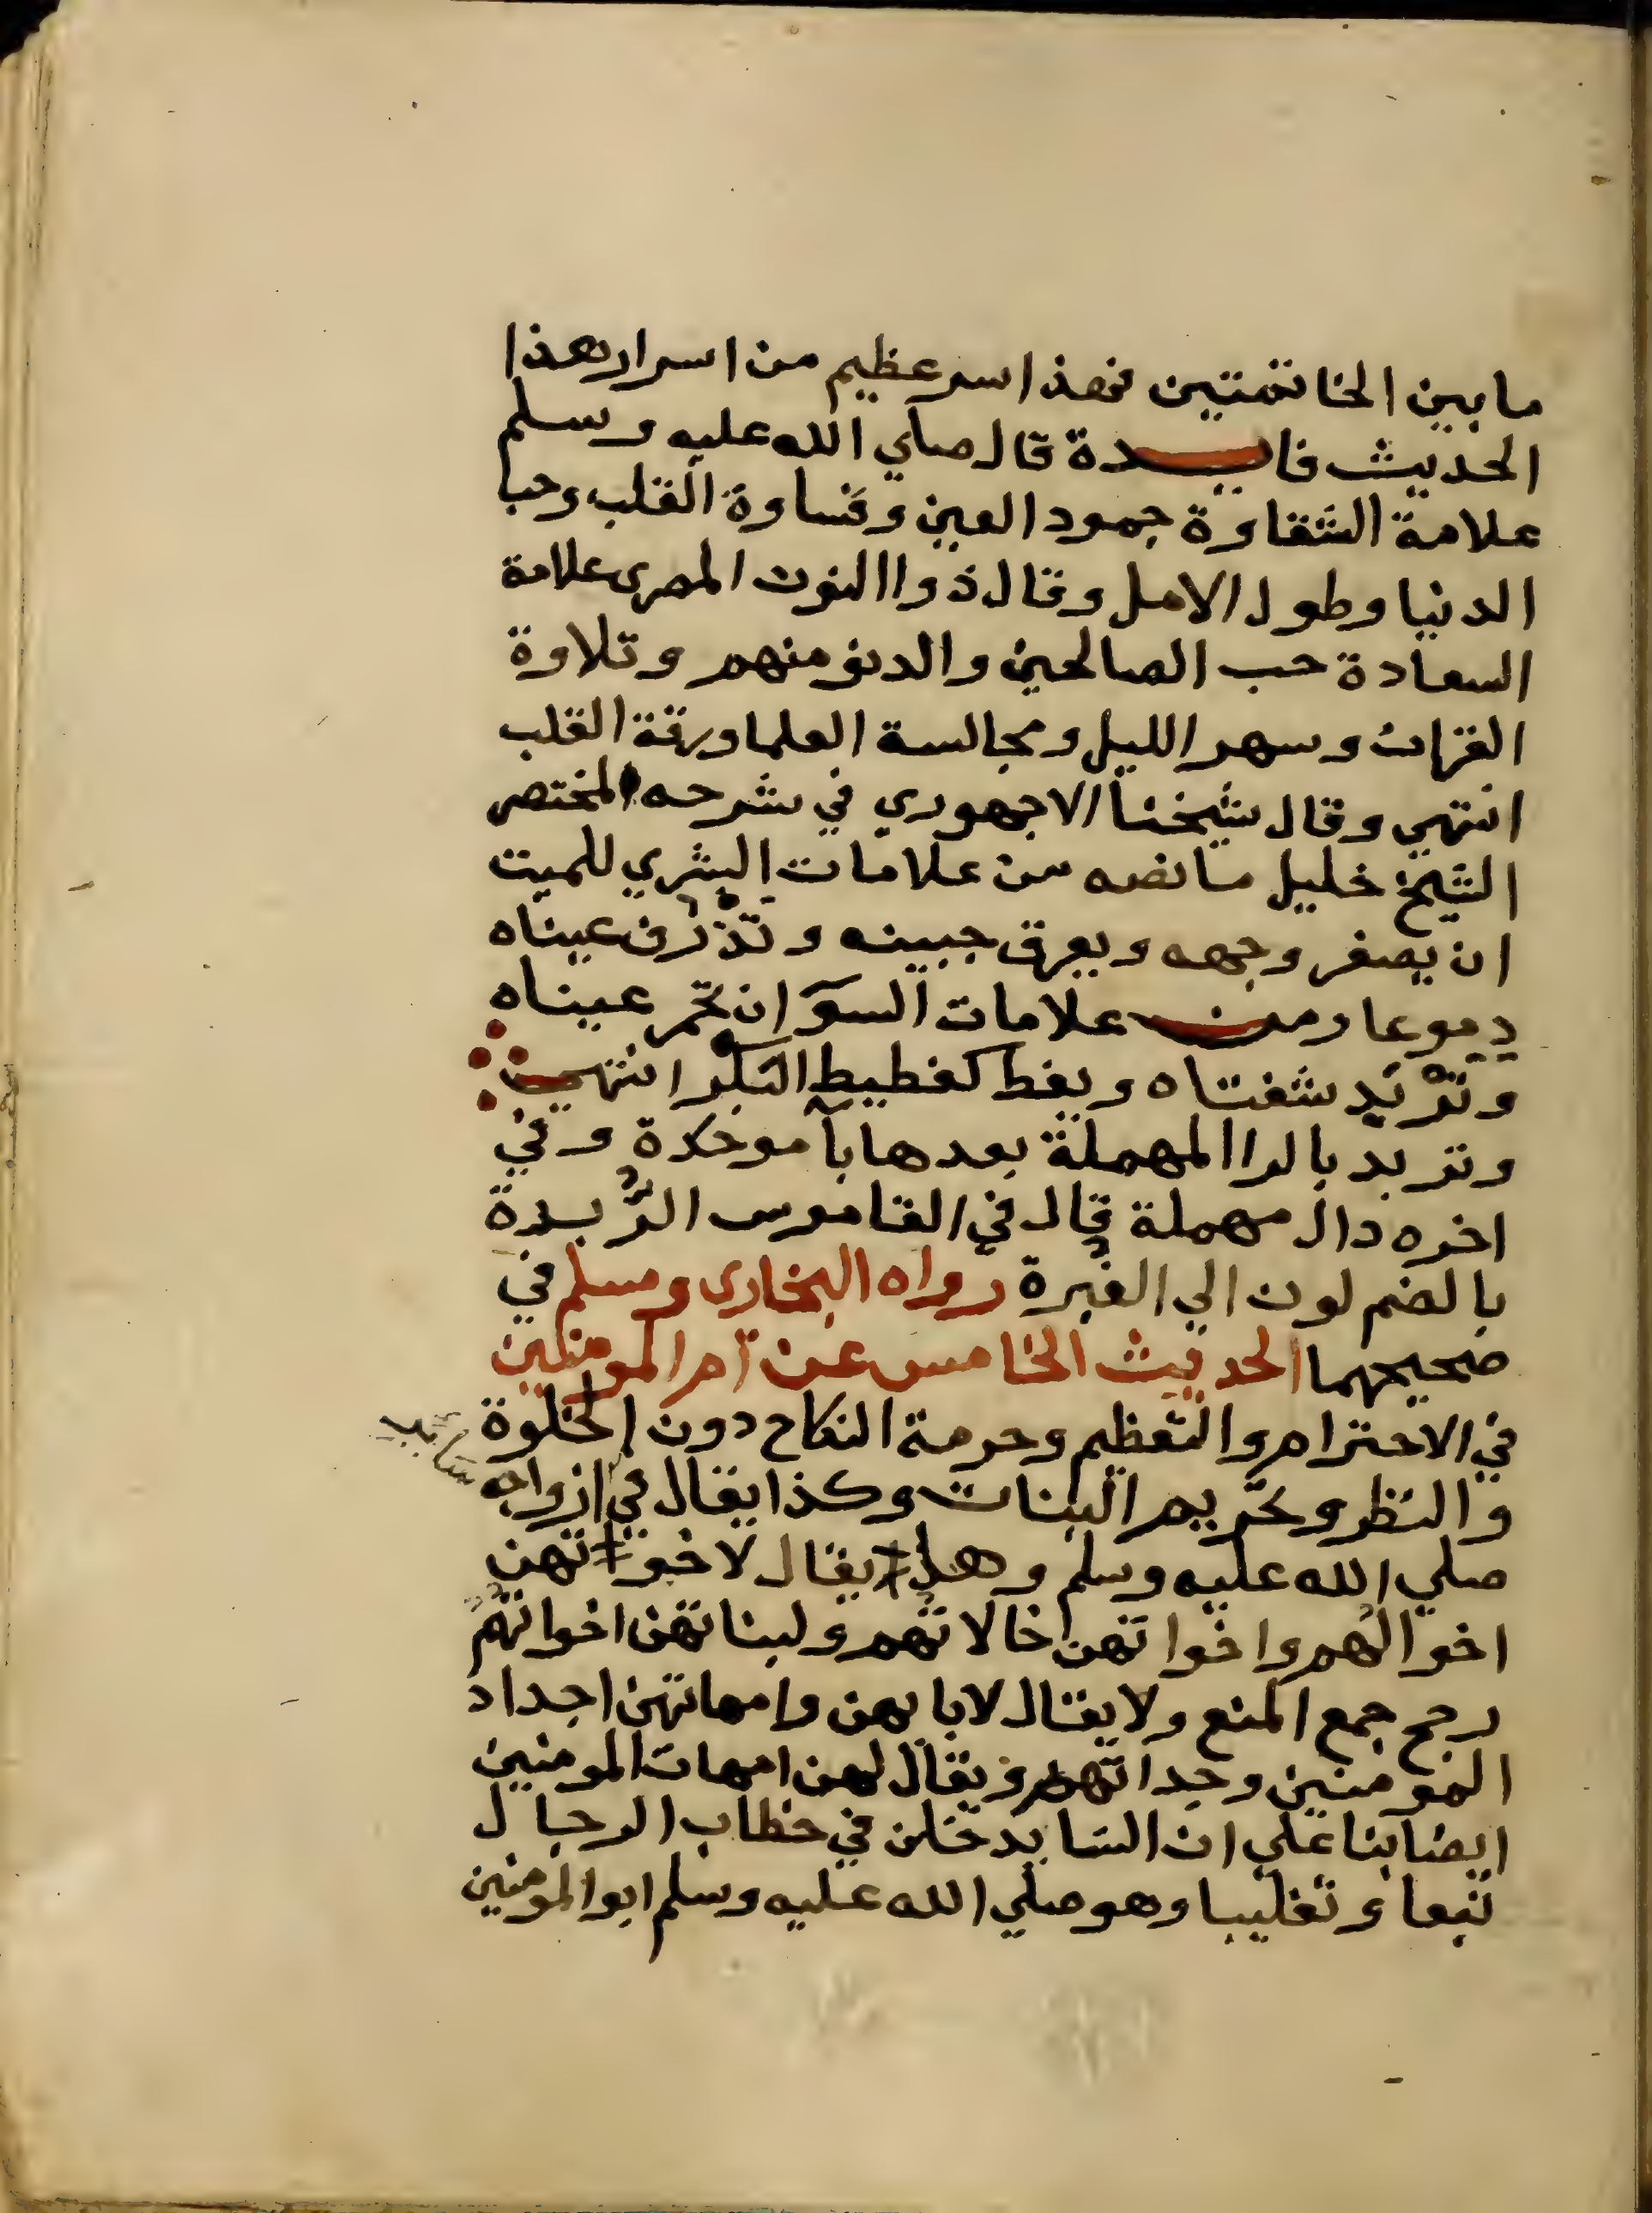 ما بين الخاتمتين فهذا سر عظيم من اسرار هذا
الحديث فايدة قال صلي الله عليه وسلم
علامة الشقاوة جمود العين وقساوة القلب وحب
الدنيا وطول الامل وقال ذواالنون المصري علامة
السعادة حب الصالحين والدنو منهم وتلاوة
القران وسهر الليل ومجالسة العلما ورقة القلب
انتهي وقال شيخنا الاجهوري في شرحه المختصر
الشيخ خليل ما نصه من علامات البشري للميت
ان يصفر وجهه ويعرق جبينه وتذرف عيناه
دموعا ومن علامات السوَ ان تحمر عيناه
وتَرْبَدّ شفتاه ويغط كغطيط البكر انتهي
وتربد بالراالمهملة بعدها بآ موحدة وفي
اخره دال مهملة قال في القاموس الرُّبدة
بالضم لون الي الغُبرة رواه البخاري ومسلم في
صحيحهما الحديث الخامس عن ام المومنين
في الاحترام والتعظيم وحرمة النكاح دون الخلوة
والنظر وتحريم البنات وكذا يقال في ازواجه
صلي الله عليه وسلم وهل يقال لاخوتهن
اخوالهم واخواتهن خالاتهم ولبناتهن اخواتهم
رجح جمع المنع ولا يقال لابايهن وامهاتهن اجداد
المومنين وجداتهم ويقال لهن امهات المومنين
ايضا بنا علي ان النسا يدخلن في خطاب الرجال
تبعا وتغليبا وهو صلي الله عليه وسلم ابو المومنين